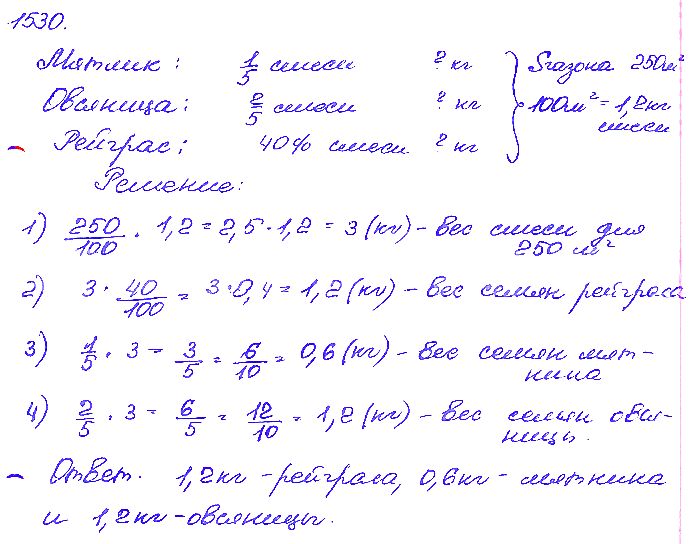 1530.
Мятлик: 1/5 смеси ? кг Sгазона 250м²
Овсяница: 2/5 смеси ? кг 100м² = 1,2кг смеси
– Рейграс: 40% смеси ? кг
Решение:
1) 250/100 · 1,2 = 2,5 · 1,2 = 3 (кг) – вес смеси для
250 м²
2) 3 · 40/100 = 3 · 0,4 = 1,2 (кг) – вес семян рейграса
3) 1/5 · 3 = 3/5 = 6/10 = 0,6 (кг) – вес семян мят-
нина
4) 2/5 · 3 = 6/5 = 12/10 = 1,2 (кг) – вес семян овся-
ницы.
– Ответ. 1,2кг – рейграса, 0,6кг – мятнина
и 1,2кг – овсяницы.